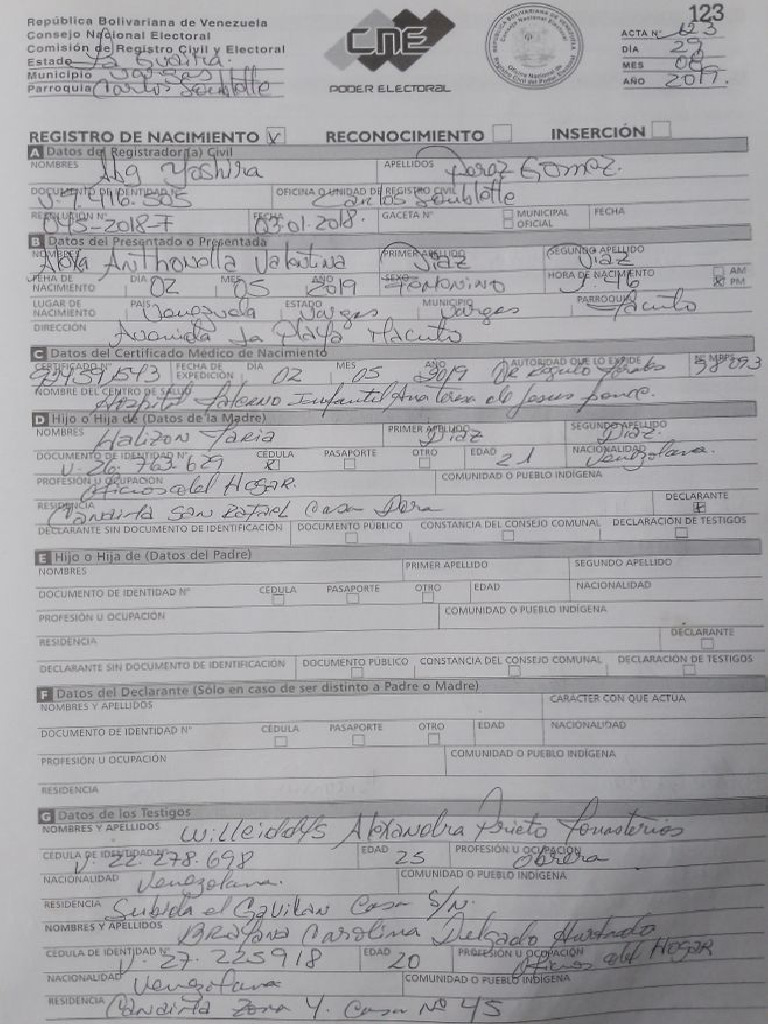 123
República Bolivariana de Venezuela
Consejo Nacional Electoral
Comisión de Registro Civil y Electoral
Estado La Guaira.
Municipio Vargas
Parroquia Carlos Soublette
CNE
PODER ELECTORAL
REPÚBLICA BOLIVARIANA DE VENEZUELA
Consejo Nacional Electoral
ACTA N° 623
DÍA 29
MES 08
AÑO 2019.
REGISTRO DE NACIMIENTO RECONOCIMIENTO INSERCIÓN
A Datos del Registrador(a) Civil
NOMBRES Abg Yoshira APELLIDOS Perez Gomez.
DOCUMENTO DE IDENTIDAD N° V.7.416.505 OFICINA O UNIDAD DE REGISTRO CIVIL Carlos Soublette
RESOLUCIÓN N° 045-2018-7 FECHA 03.01.2018. GACETA N° MUNICIPAL OFICIAL FECHA
B Datos del Presentado o Presentada
NOMBRES Anthonella Valentina PRIMER APELLIDO Diaz SEGUNDO APELLIDO Diaz
FECHA DE NACIMIENTO DÍA 02 MES 05 AÑO 2019 SEXO Femenino HORA DE NACIMIENTO AM PM
LUGAR DE NACIMIENTO PAÍS Venezuela ESTADO Vargas MUNICIPIO Vargas PARROQUIA Macuto
DIRECCIÓN Avenida La Playa Macuto
C Datos del Certificado Médico de Nacimiento
CERTIFICADO N° FECHA DE EXPEDICIÓN DÍA 02 MES 05 AÑO 2019 AUTORIDAD QUE LO EXPIDE N° MPPS 98093
NOMBRE DEL CENTRO DE SALUD Hospital Materno Infantil Ana Teresa de Jesus ponce.
D Hijo o Hija de (Datos de la Madre)
NOMBRES Maria PRIMER APELLIDO Diaz SEGUNDO APELLIDO Diaz.
DOCUMENTO DE IDENTIDAD N° V.26.763.629 CÉDULA PASAPORTE OTRO EDAD 21 NACIONALIDAD Venezolana.
PROFESIÓN U OCUPACIÓN Oficios del Hogar. COMUNIDAD O PUEBLO INDÍGENA
RESIDENCIA San Rafael Casa DECLARANTE
DECLARANTE SIN DOCUMENTO DE IDENTIFICACIÓN DOCUMENTO PÚBLICO CONSTANCIA DEL CONSEJO COMUNAL DECLARACIÓN DE TESTIGOS
E Hijo o Hija de (Datos del Padre)
NOMBRES PRIMER APELLIDO SEGUNDO APELLIDO
DOCUMENTO DE IDENTIDAD N° CÉDULA PASAPORTE OTRO EDAD NACIONALIDAD
PROFESIÓN U OCUPACIÓN COMUNIDAD O PUEBLO INDÍGENA
RESIDENCIA DECLARANTE
DECLARANTE SIN DOCUMENTO DE IDENTIFICACIÓN DOCUMENTO PÚBLICO CONSTANCIA DEL CONSEJO COMUNAL DECLARACIÓN DE TESTIGOS
F Datos del Declarante (Sólo en caso de ser distinto a Padre o Madre)
NOMBRES Y APELLIDOS CARÁCTER CON QUE ACTÚA
DOCUMENTO DE IDENTIDAD N° CÉDULA PASAPORTE OTRO EDAD NACIONALIDAD
PROFESIÓN U OCUPACIÓN COMUNIDAD O PUEBLO INDÍGENA
RESIDENCIA
G Datos de los Testigos
NOMBRES Y APELLIDOS Willeiddys Alexandra Prieto Monasterios
CÉDULA DE IDENTIDAD N° V.22.278.698 EDAD 25 PROFESIÓN U OCUPACIÓN Obrera
NACIONALIDAD Venezolana. COMUNIDAD O PUEBLO INDÍGENA
RESIDENCIA Subida el Gavilan Casa S/N.
NOMBRES Y APELLIDOS Brayana Carolina Delgado Hurtado
CÉDULA DE IDENTIDAD N° V.27.225918 EDAD 20 PROFESIÓN U OCUPACIÓN Oficios del Hogar
NACIONALIDAD Venezolana COMUNIDAD O PUEBLO INDÍGENA
RESIDENCIA Zona 4. Casa N° 45